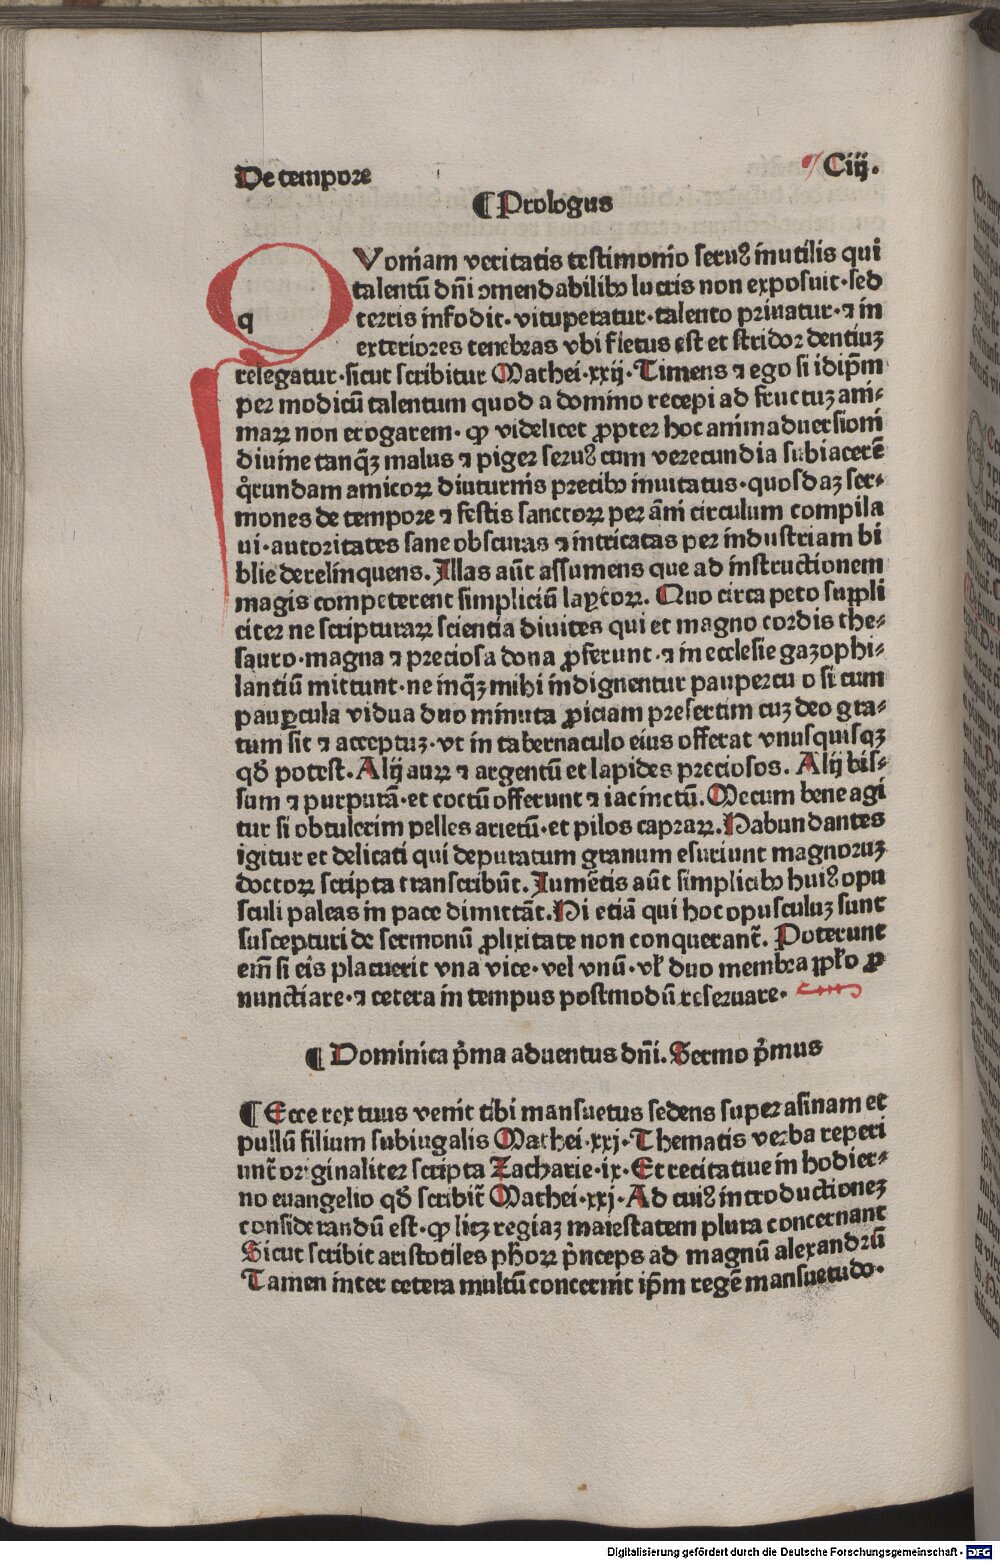 De tempore
Ciij.
¶Prologus
q
Voniam veritatis testimonio seruꝰ inutilis qui
talentū dn̄i ꝯmendabilibꝰ lucris non exposuit·sed
terris infodit·vituperatur·talento priuatur·⁊ in
exteriores tenebras vbi fletus est et stridor dentiuꝫ
relegatur·sicut scribitur Mathei·xxij·Timens ⁊ ego si idip̄m
per modicū talentum quod a domino recepi ad fructuꝫ ani-
marꝝ non erogarem·ꝙ videlicet ꝓpter hoc animaduersioni
diuine tanqꝫ malus ⁊ piger seruꝰ cum verecundia subiacerē
qͦrundam amicorꝝ diuturnis precibꝰ inuitatus·quosdaꝫ ser-
mones de tempore ⁊ festis sanctorꝝ per āni circulum compila
ui·autoritates sane obscuras ⁊ intricatas per industriam bi
blie derelinquens. Illas aūt assumens que ad instructionem
magis competerent simpliciū laycorꝝ. Quo circa peto suppli
citer ne scripturarꝝ scientia diuites qui et magno cordis the-
sauro·magna ⁊ preciosa dona ꝓferunt·⁊ in ecclesie gazophi-
lantiū mittunt·ne inqꝫ mihi indignentur paupercu o si cum
pauꝑcula vidua duo minuta ꝓiciam presertim cuꝫ deo gra-
tum sit ⁊ acceptuꝫ·vt in tabernaculo eius offerat vnusquisqꝫ
qđ potest. Alij aurꝝ ⁊ argentū et lapides preciosos. Alij bis-
sum ⁊ purpurā·et coctū offerunt ⁊ iacinctū. Mecum bene agi
tur si obtulerim pelles arietū·et pilos caprarꝝ. Habundantes
igitur et delicati qui deputatum granum esuriunt magnoruꝫ
doctorꝝ scripta transcribūt. Iumētis aūt simplicibꝰ huiꝰ opu
sculi paleas in pace dimittāt. Hi etiā qui hoc opusculuꝫ sunt
suscepturi de sermonū ꝓlixitate non conquerant̄. Poterunt
em̄ si eis placuerit vna vice·vel vnū·vł duo membra ꝓpl̄o ꝓ
nunctiare·⁊ cetera in tempus postmodū reseruare·
¶Dominica p̄ma aduentus dn̄i. Sermo p̄mus
¶Ecce rex tuus venit tibi mansuetus sedens super asinam et
pullū filium subiugalis Mathei·xxj·Thematis verba reperi
unt̄ or ginaliter scripta Zacharie·ix·Et recitatiue in hodier-
no euangelio qđ scribit̄ Mathei·xxj·Ad cuiꝰ introductioneꝫ
considerandū est·ꝙ licꝫ regiaꝫ maiestatem plura concernant
Sicut scribit aristotiles ph̄orꝝ p̄nceps ad magnū alexandrū
Tamen inter cetera multū concernit ip̄m regē mansuetudo·
Digitalisierung gefördert durch die Deutsche Forschungsgemeinschaft - DFG